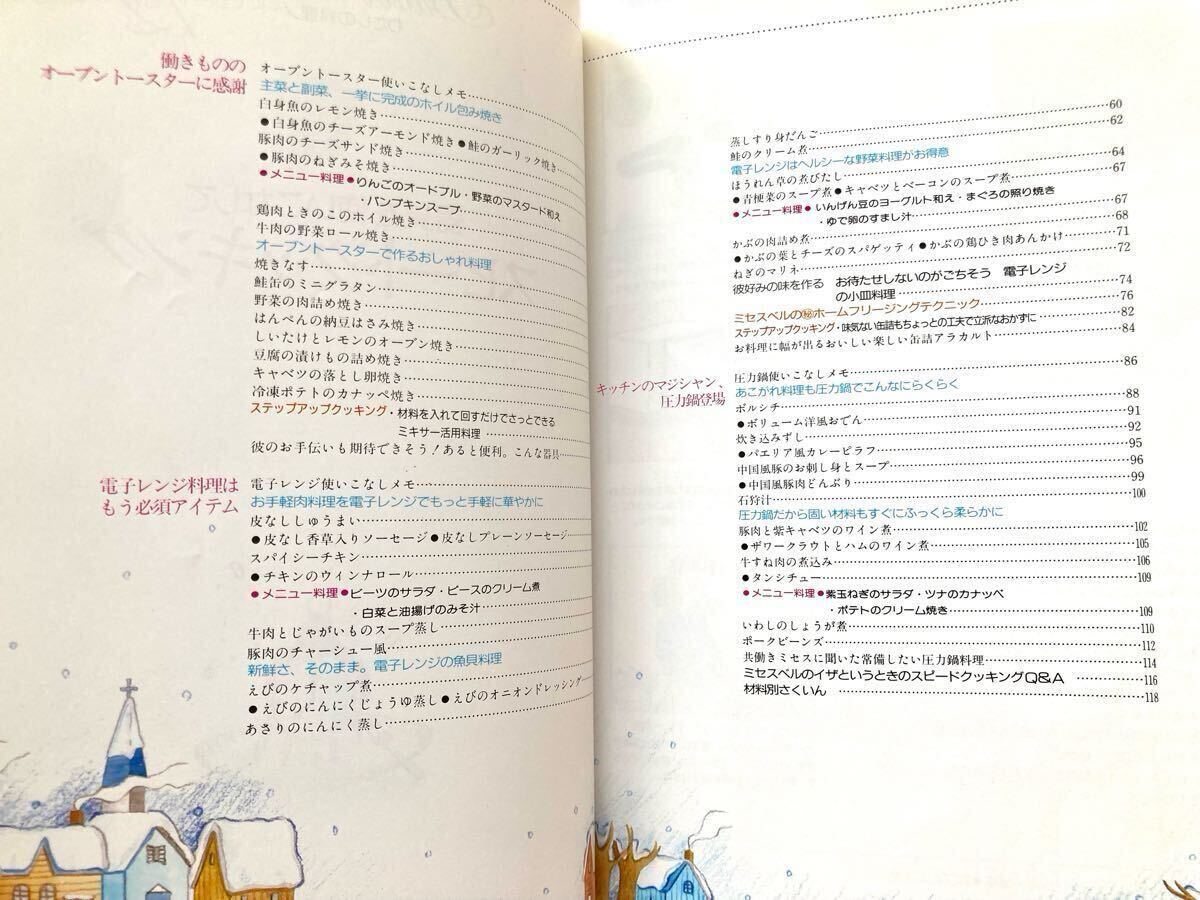 働きものの
オーブントースターに感謝
オーブントースター使いこなしメモ
主菜と副菜、一挙に完成のホイル包み焼き
白身魚のレモン焼き
●白身魚のチーズアーモンド焼き●鮭のガーリック焼き
豚肉のチーズサンド焼き
●豚肉のねぎみそ焼き
●メニュー料理●りんごのオードブル・野菜のマスタード和え
・パンプキンスープ
鶏肉ときのこのホイル焼き
牛肉の野菜ロール焼き
オーブントースターで作るおしゃれ料理
焼きなす
鮭缶のミニグラタン
野菜の肉詰め焼き
はんぺんの納豆はさみ焼き
しいたけとレモンのオーブン焼き
豆腐の漬けもの詰め焼き
キャベツの落とし卵焼き
冷凍ポテトのカナッペ焼き
ステップアップクッキング・材料を入れて回すだけでさっとできる
ミキサー活用料理
彼のお手伝いも期待できそう!あると便利。こんな器具
電子レンジ料理は
もう必須アイテム
電子レンジ使いこなしメモ
お手軽肉料理を電子レンジでもっと手軽に華やかに
皮なししゅうまい
●皮なし香草入りソーセージ●皮なしプレーンソーセージ
スパイシーチキン
●チキンのウィンナロール
●メニュー料理●ビーツのサラダ・ピースのクリーム煮
・白菜と油揚げのみそ汁
牛肉とじゃがいものスープ蒸し
豚肉のチャーシュー風
新鮮さ、そのまま。電子レンジの魚貝料理
えびのケチャップ煮
●えびのにんにくじょうゆ蒸し●えびのオニオンドレッシング
あさりのにんにく蒸し
蒸しすり身だんご 60
鮭のクリーム煮 62
電子レンジはヘルシーな野菜料理がお得意
ほうれん草の煮びたし 64
●青梗菜のスープ煮●キャベツとベーコンのスープ煮 67
●メニュー料理●いんげん豆のヨーグルト和え・まぐろの照り焼き
・ゆで卵のすまし汁 67
かぶの肉詰め煮 68
●かぶの葉とチーズのスパゲッティ●かぶの鶏ひき肉あんかけ 71
ねぎのマリネ 72
彼好みの味を作る お待たせしないのがごちそう 電子レンジ
の小皿料理 74
ミセスベルの㊙ホームフリージングテクニック 76
ステップアップクッキング・味気ない缶詰もちょっとの工夫で立派なおかずに 82
お料理に幅が出るおいしい楽しい缶詰アラカルト 84
キッチンのマジシャン、
圧力鍋登場
圧力鍋使いこなしメモ 86
あこがれ料理も圧力鍋でこんなにらくらく
ボルシチ 88
●ボリューム洋風おでん 91
炊き込みずし 92
●パエリア風カレーピラフ 95
中国風豚のお刺し身とスープ 96
●中国風豚肉どんぶり 99
石狩汁 100
圧力鍋だから固い材料もすぐにふっくら柔らかに
豚肉と紫キャベツのワイン煮 102
●ザワークラウトとハムのワイン煮 105
牛すね肉の煮込み 106
●タンシチュー 109
●メニュー料理●紫玉ねぎのサラダ・ツナのカナッペ
・ポテトのクリーム焼き 109
いわしのしょうが煮 110
ポークビーンズ 112
共働きミセスに聞いた常備したい圧力鍋料理 114
ミセスベルのイザというときのスピードクッキングQ&A 116
材料別さくいん 118